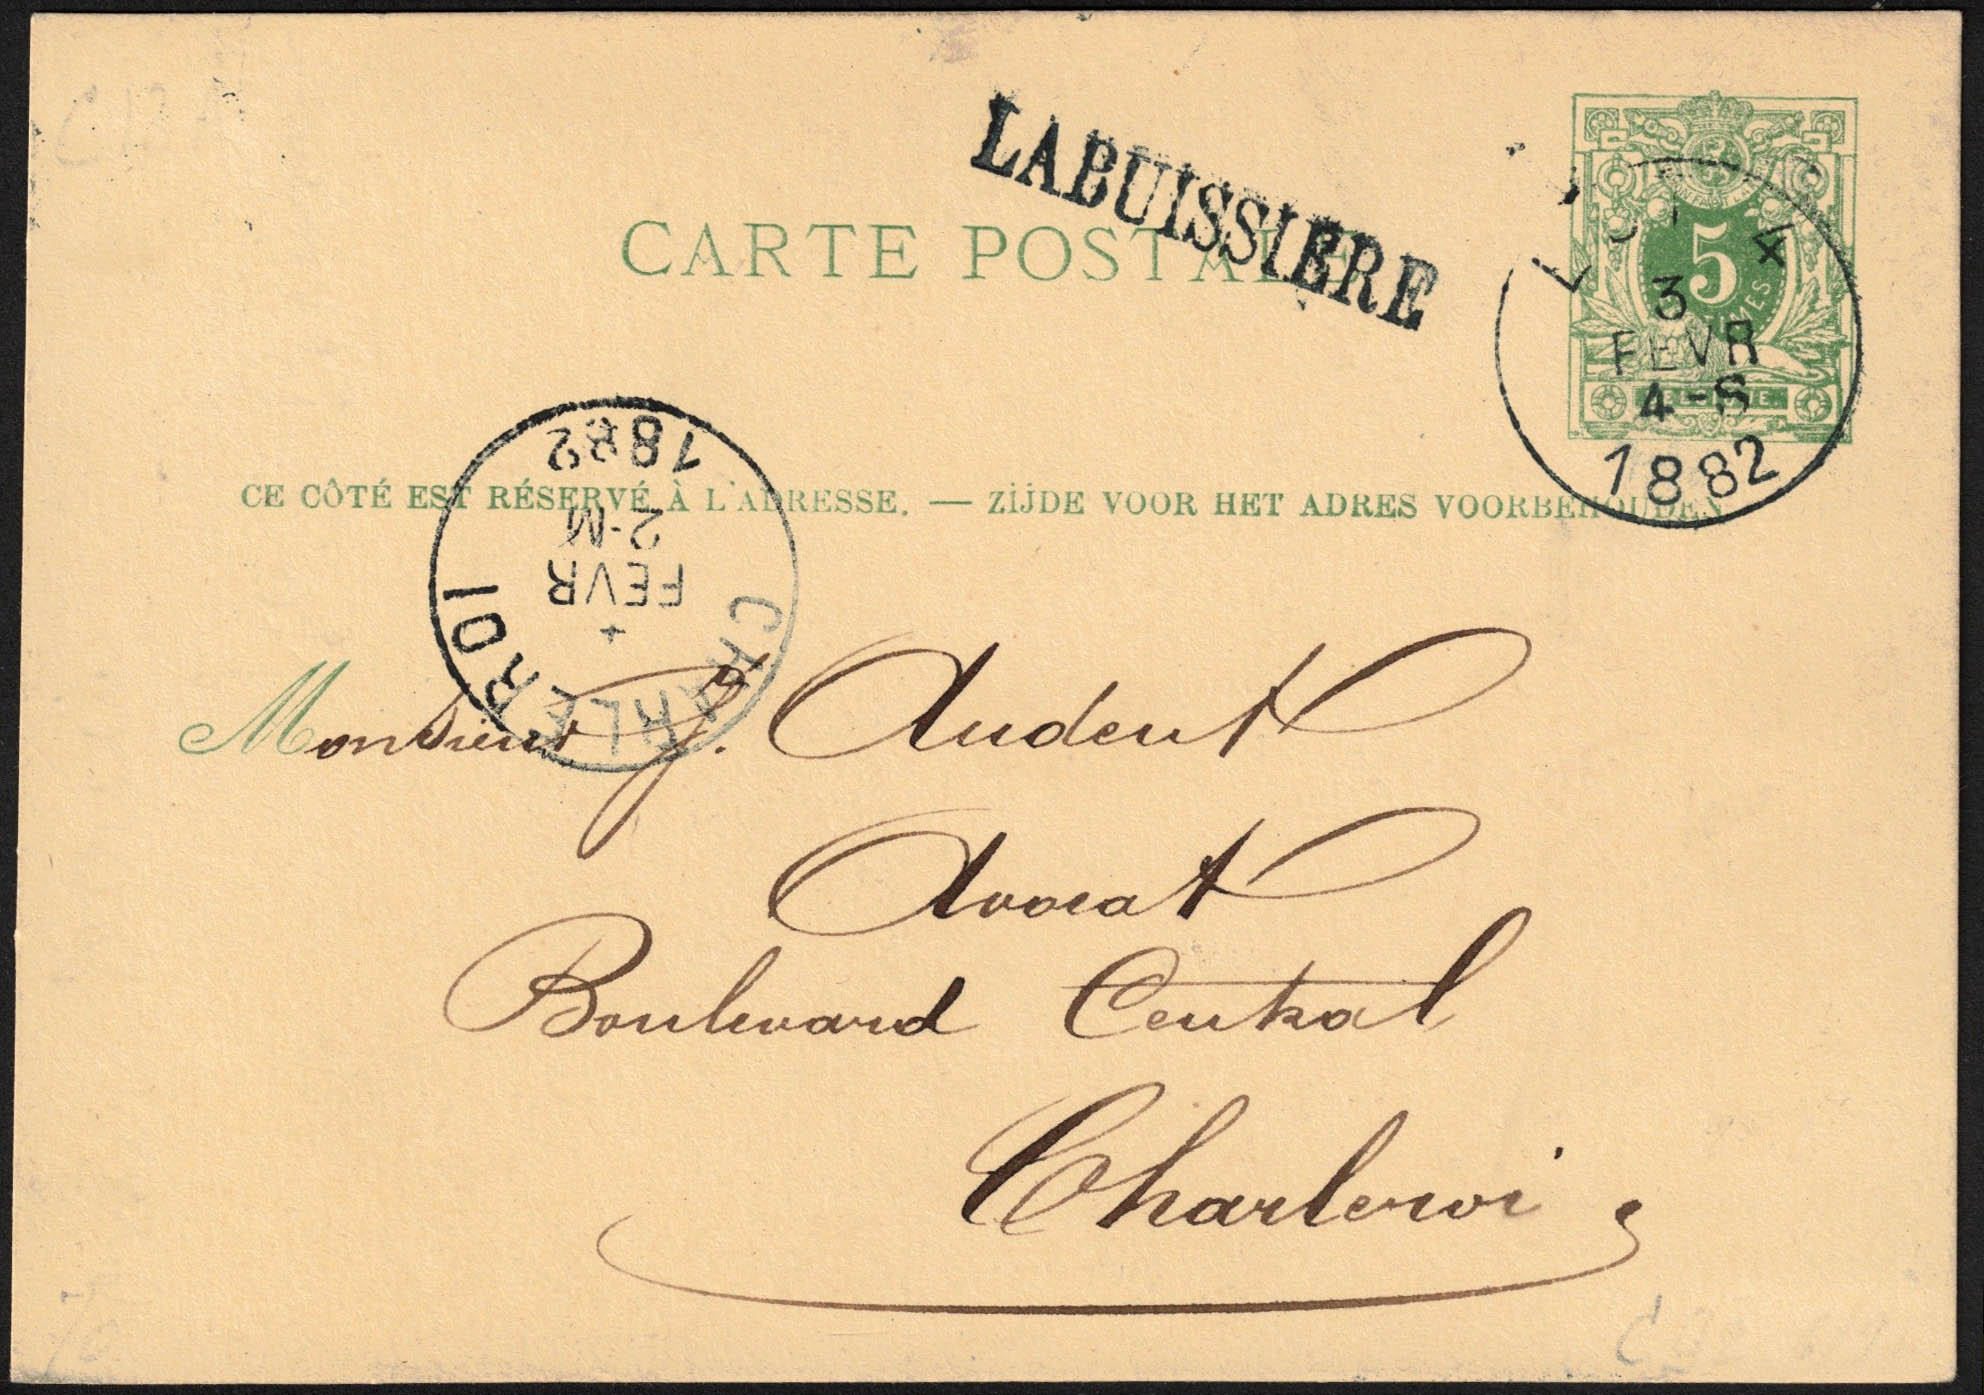 LABUISSIERE
CARTE POSTALE
5
3
FEVR
4-S
1882
CE CÔTÉ EST RÉSERVÉ À L'ADRESSE. — ZIJDE VOOR HET ADRES VOORBEHOUDEN
1882
2-M
FEVR
+
CHARLEROI
Monsieur J. Audent
Avocat
Boulevard Central
Charleroi